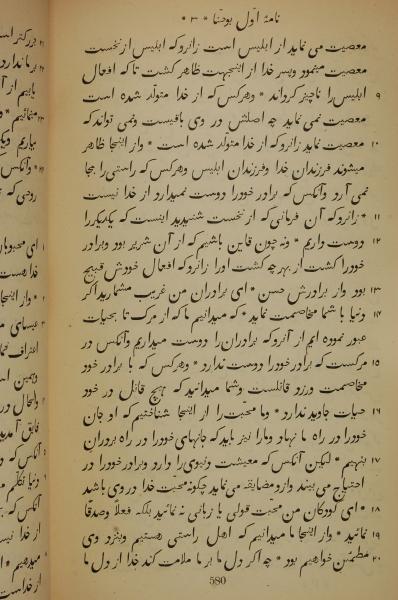 نامهٔ اوّل یوحنّا * ۳ *
معصیت می نماید از ابلیس است زانرو که ابلیس از نخست
معصیت مینمود و پسر خدا از اینجهت ظاهر گشت تا که افعال
۹ ابلیس را ناچیز گرداند * و هر کس که از خدا متولّد شده است
معصیت نمی نماید چه اصلش در وی باقیست و نمی تواند که
۱۰ معصیت نماید زانرو که از خدا متولّد شده است * و از اینجا ظاهر
میشوند فرزندان خدا و فرزندان ابلیس و هر کس که راستی را بجا
نمی آرد و آنکس که برادر خود را دوست نمیدارد از خدا نیست
۱۱ * زانرو که آن فرمانی که از نخست شنیدید اینست که یکدیگر را
۱۲ دوست داریم * و نه چون قاین باشیم که از آن شریر بود و برادر
خود را کشت از بهر چه کشت او را زانرو که افعال خودش قبیح
۱۳ بود و از برادرش حسن * ای برادران من غریب مشمارید اگر
۱۴ دنیا با شما مخاصمت نماید * که میدانیم ما که از مرک تا بحیات
عبور نموده ایم از آنرو که برادران را دوست میداریم و آنکس در
۱۵ مرکست که برادر خود را دوست ندارد * و هر کس که با برادر خود
مخاصمت ورزد قاتلست و شما میدانید که هیچ قاتل در خود
۱۶ حیات جاوید ندارد * و ما محبّت را از اینجا شناختیم که او جان
خود را در راه ما نهاد و ما را نیز باید که جانهای خود را در راه برادران
۱۷ بنهیم * لیکن آنکس که معیشت دنیوی را دارد و برادر خود را در
احتیاج می بیند و از او مضایقه می نماید چگونه محبّت خدا در وی باشد
۱۸ * ای کودکان من محبّت قولی یا زبانی نه نمائید بلکه فعلاً و صدقاً
۱۹ نمائید * و از اینجا ما میدانیم که اهل راستی هستیم و بنزد وی
۲۰ مطمئن خواهیم بود * چه اگر دل ما بر ما ملامت کند خدا از دل ما
580